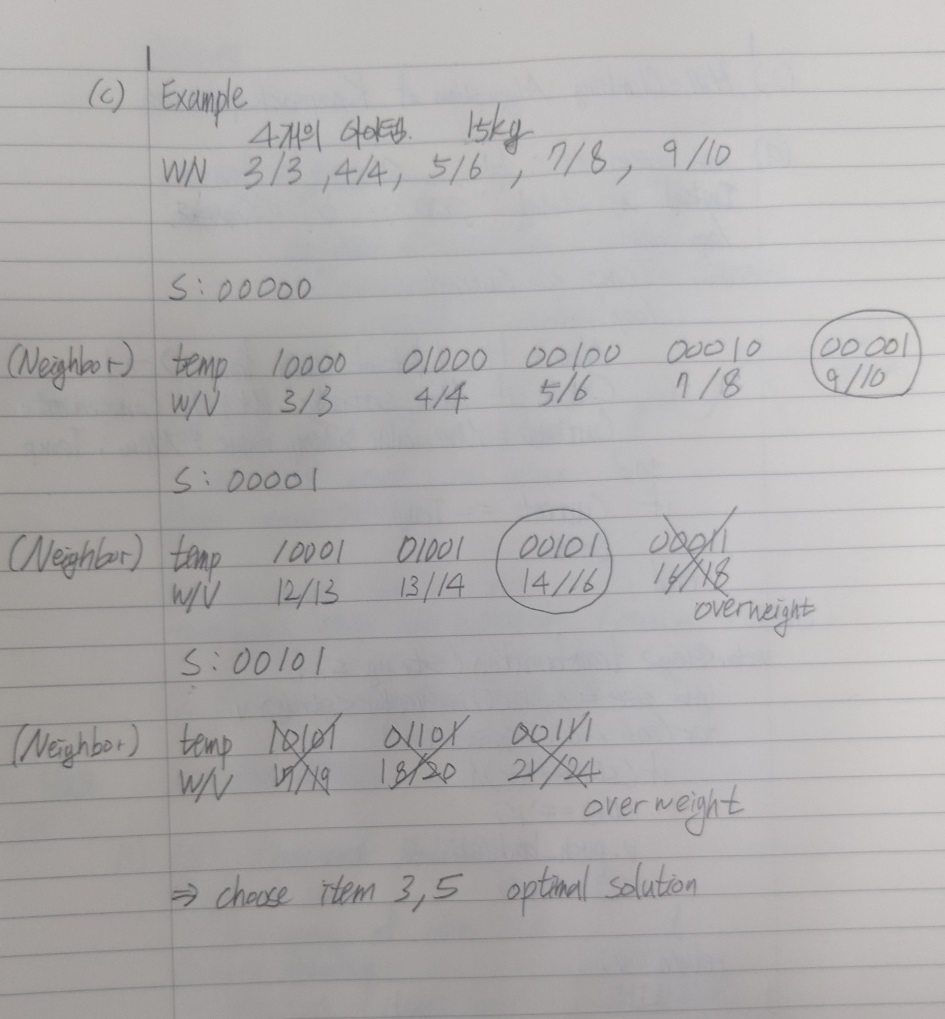 (c) Example
4개의 아이템. 15kg
W/V 3/3, 4/4, 5/6, 7/8, 9/10
S: 00000
(Neighbor) temp 10000 01000 00100 00010 00001
W/V 3/3 4/4 5/6 7/8 9/10
S: 00001
(Neighbor) temp 10001 01001 00101 00011
W/V 12/13 13/14 14/16 16/18
overweight
S: 00101
(Neighbor) temp 10101 01101 00111
W/V 17/19 18/20 21/24
overweight
⇒ choose item 3,5 optimal solution